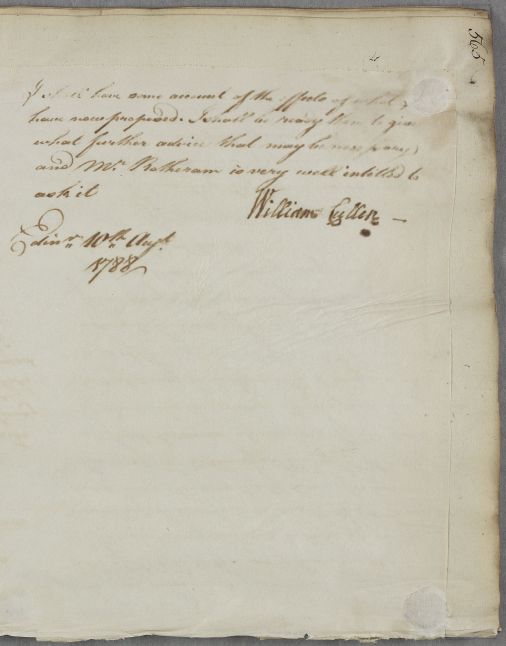 565
4
I shall have some account of the effects of what I
have now proposed. I shall be ready then to give
what further advice that may be necessary,
and Mr. Rotheram is very well intitled to
ask it
William Cullen
Edinr. 10th Augt.
1788